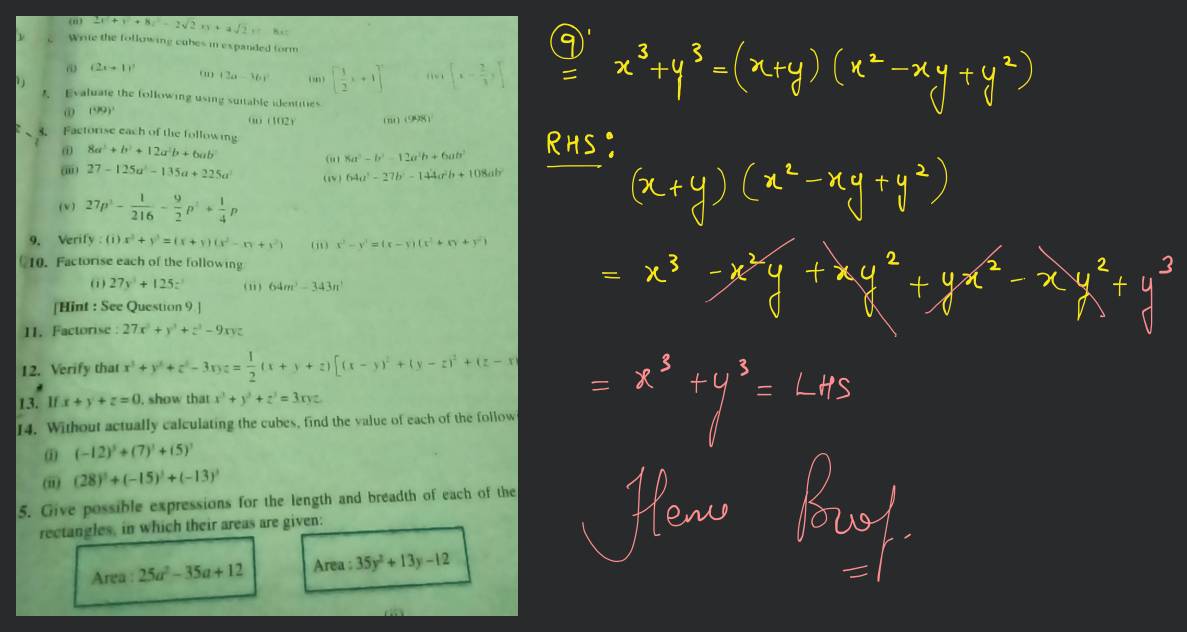 (ii) 2x² + y² + 8z² – 2√2 xy + 4√2 yz – 8xz
Write the following cubes in expanded form
(i) (2x + 1)³ (ii) (2a – 3b)³ (iii) [3/2 x + 1]³ (iv) [x – 2/3 y]³
Evaluate the following using suitable identities
(i) (99)³ (ii) (102)³ (iii) (998)³
8. Factorise each of the following
(i) 8a³ + b³ + 12a²b + 6ab² (ii) 8a³ – b³ – 12a²b + 6ab²
(iii) 27 – 125a³ – 135a + 225a² (iv) 64a³ – 27b³ – 144a²b + 108ab²
(v) 27p³ – 1/216 – 9/2 p² + 1/4 p
9. Verify : (i) x³ + y³ = (x + y) (x² – xy + y²) (ii) x³ – y³ = (x – y) (x² + xy + y²)
10. Factorise each of the following
(i) 27y³ + 125z³ (ii) 64m³ – 343n³
[Hint : See Question 9 ]
11. Factorise : 27x³ + y³ + z³ – 9xyz
12. Verify that x³ + y³ + z³ – 3xyz = 1/2 (x + y + z) [(x – y)² + (y – z)² + (z – x)
13. If x + y + z = 0, show that x³ + y³ + z³ = 3xyz.
14. Without actually calculating the cubes, find the value of each of the follow
(i) (–12)³ + (7)³ + (5)³
(ii) (28)³ + (–15)³ + (–13)³
5. Give possible expressions for the length and breadth of each of the
rectangles, in which their areas are given:
Area : 25a² – 35a + 12 Area : 35y² + 13y –12
9 x³ + y³ = (x+y) (x² – xy + y²)
RHS :
(x + y) (x² – xy + y²)
= x³ – x²y + xy² + yx² – xy² + y³
= x³ + y³ = LHS
Hence Proof.